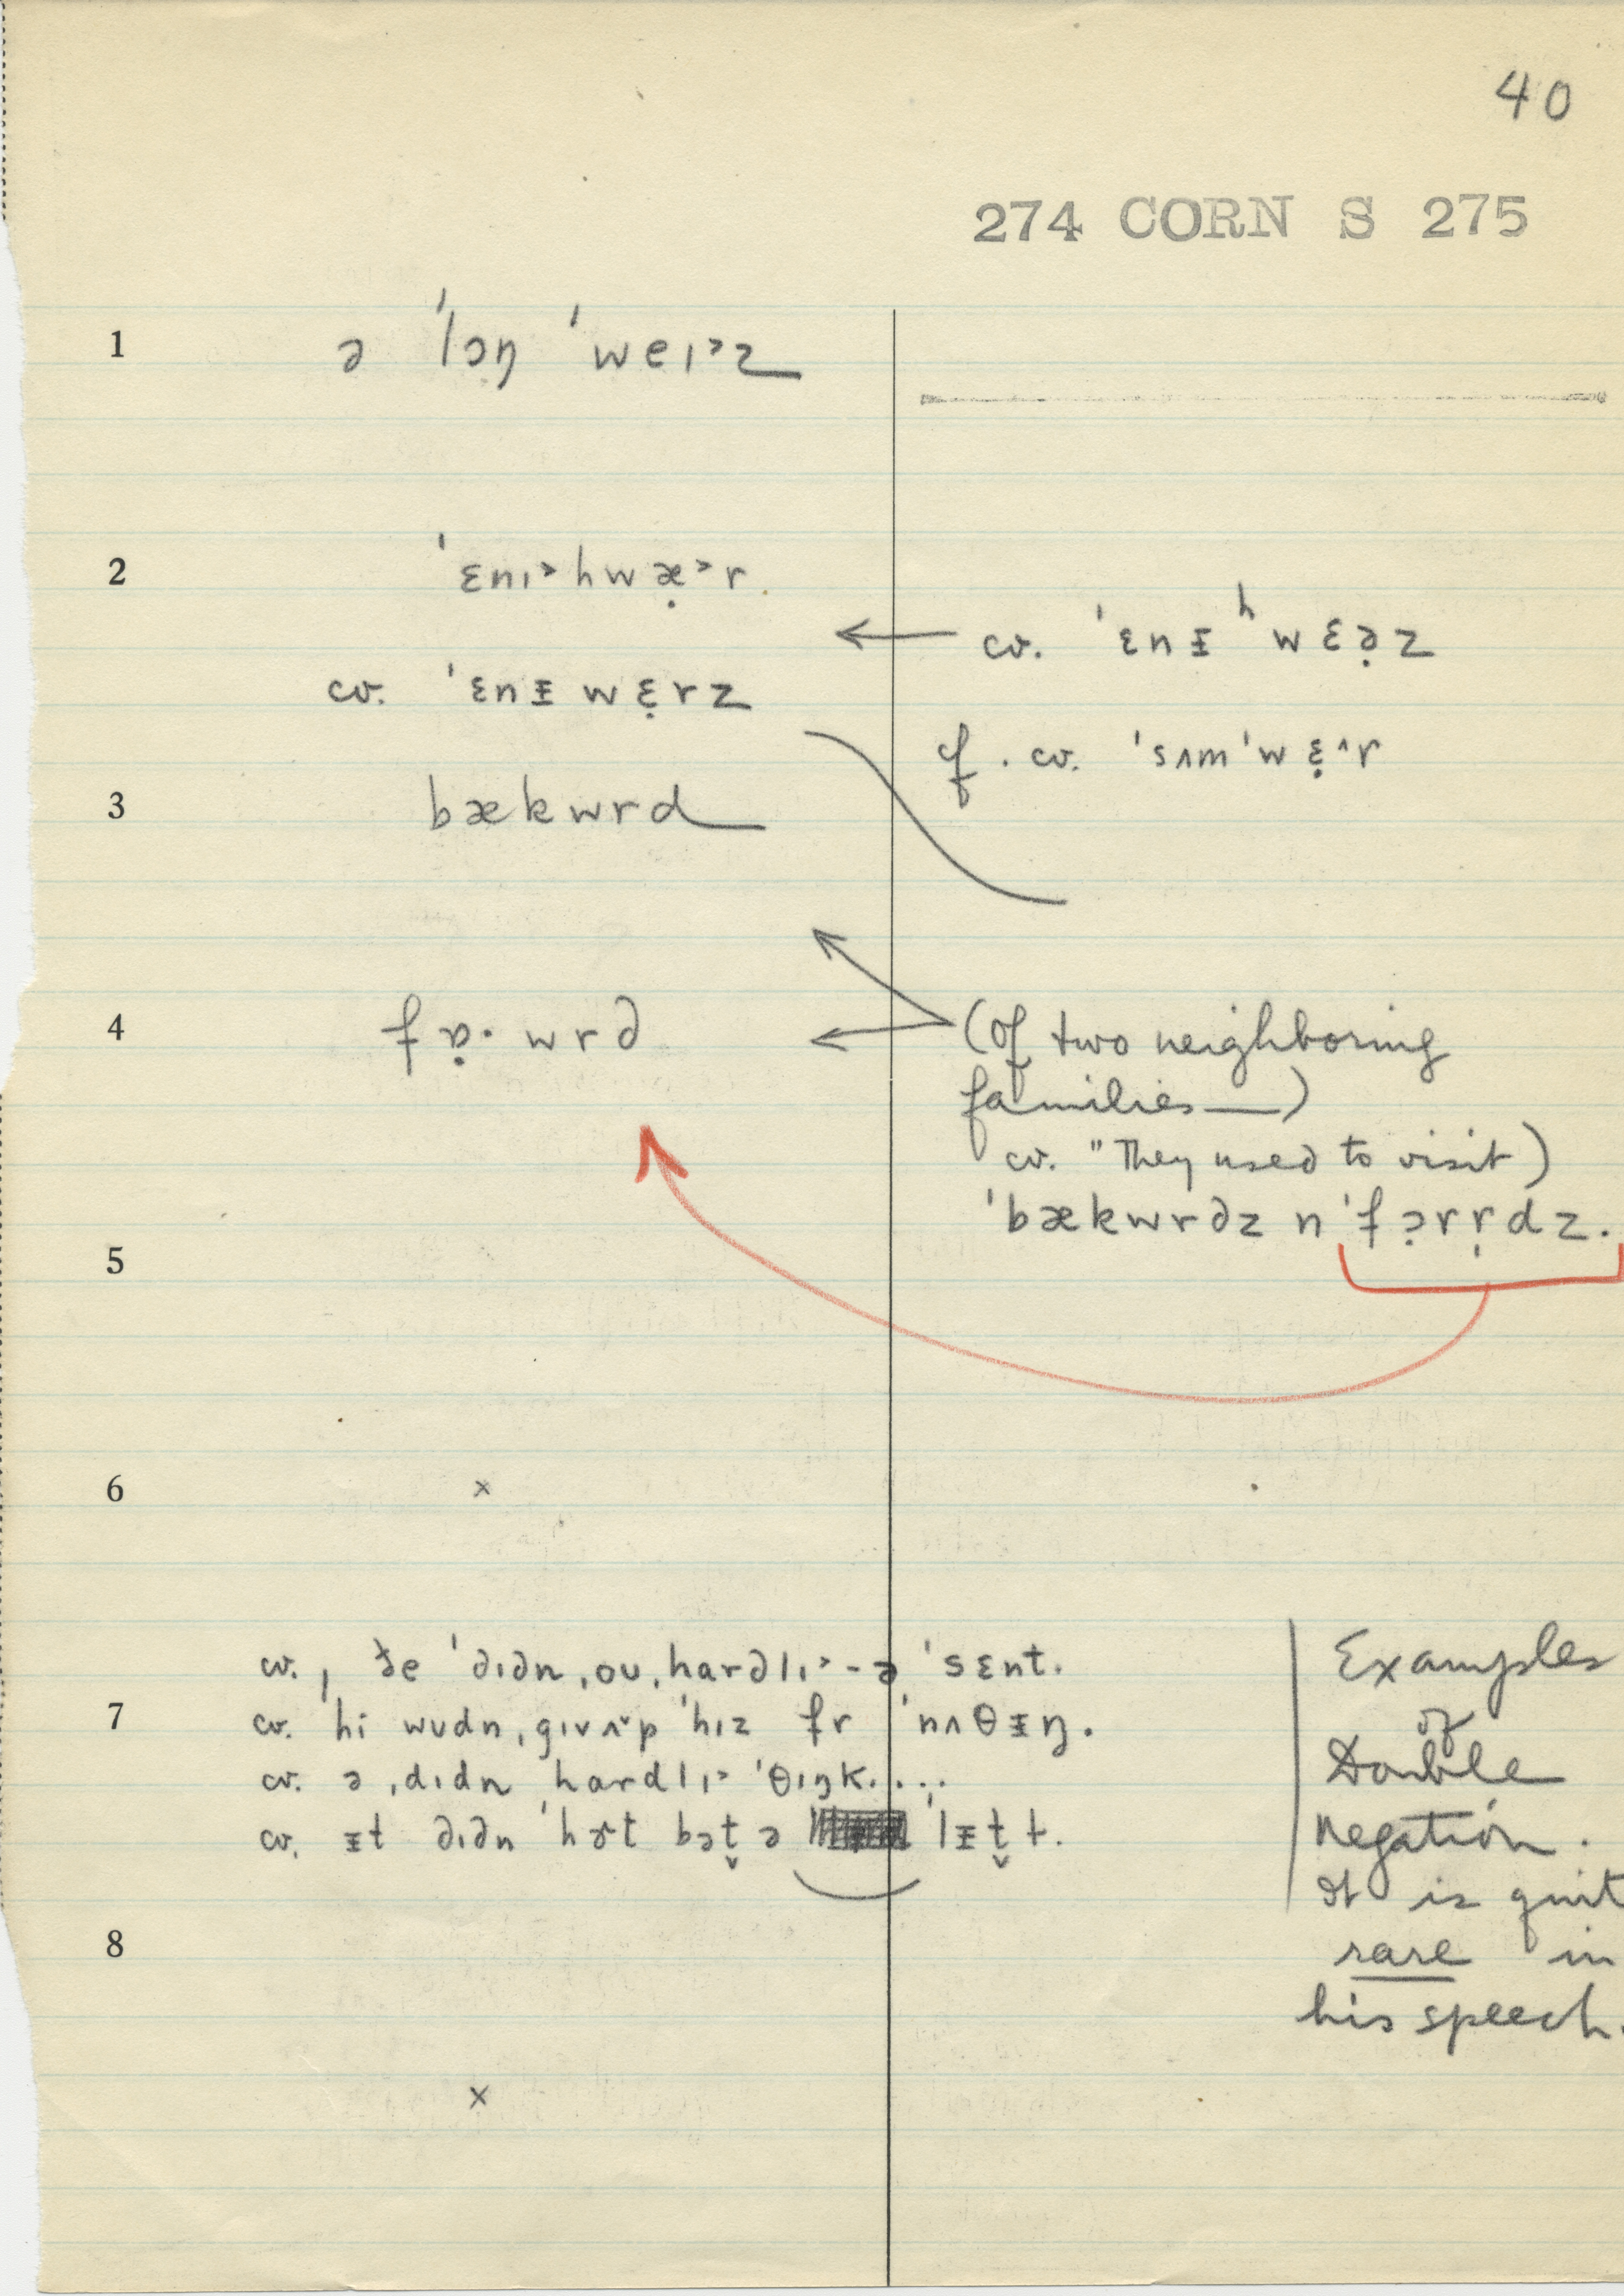 40
274 CORN S 275
1 ə ˈlɔŋ ˈweɪ˃z
2 ˈɛnɪ˃hwæ̣˃r
cv. ˈɛnᵻʰwɛə̣z
cv. ˈɛnᵻwɛ̣rz
cf. cv. ˈsʌmˈwɛ̣^r
3 bækwrd
4 fɒ̣·wrd
(of two neighboring
families—)
cv. "They used to visit)
ˈbækwrdz n ˈfɔ̣rṛdz.
5
6 x
cv. ˌðe ˈdɪdn ˌoʊ ˌhardlɪ˃-ə ˈsɛnt.
7 cv. ˈhi wʊdn ˌgɪv ʌ˅p ˈhɪz fr ˈnʌθᵻŋ.
cv. ə ˌdɪdn ˌhardlɪ˃ ˈθɪŋk....
cv. ᵻt dɪdn ˈhɚt bət̬ ə ˈlᵻt̬ɫ.
Examples
of
Double
negation.
It is quit
rare in
his speech.
8
x